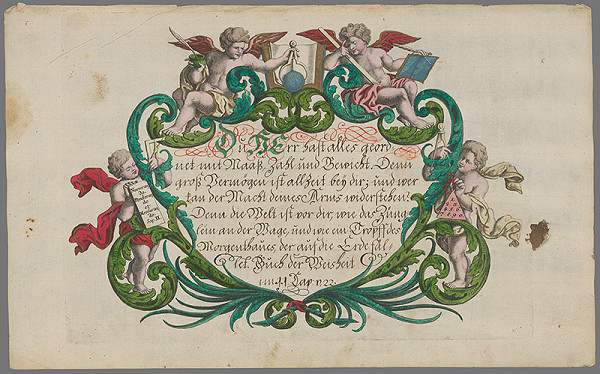 Du HErr hast alles geord-
net mit Maaß, Zahl und Gewicht. Denn
groß Vermögen ist allzeit bey dir; und wer
kan der Macht deines Arms widerstehen?
Denn die Welt ist vor dir, wie das Züng-
lein an der Wage, und wie ein Tropff des
Morgenthaues, der auf die Erde fäl-
let. Buch der Weisheit
im 11 Cap. v. 22.